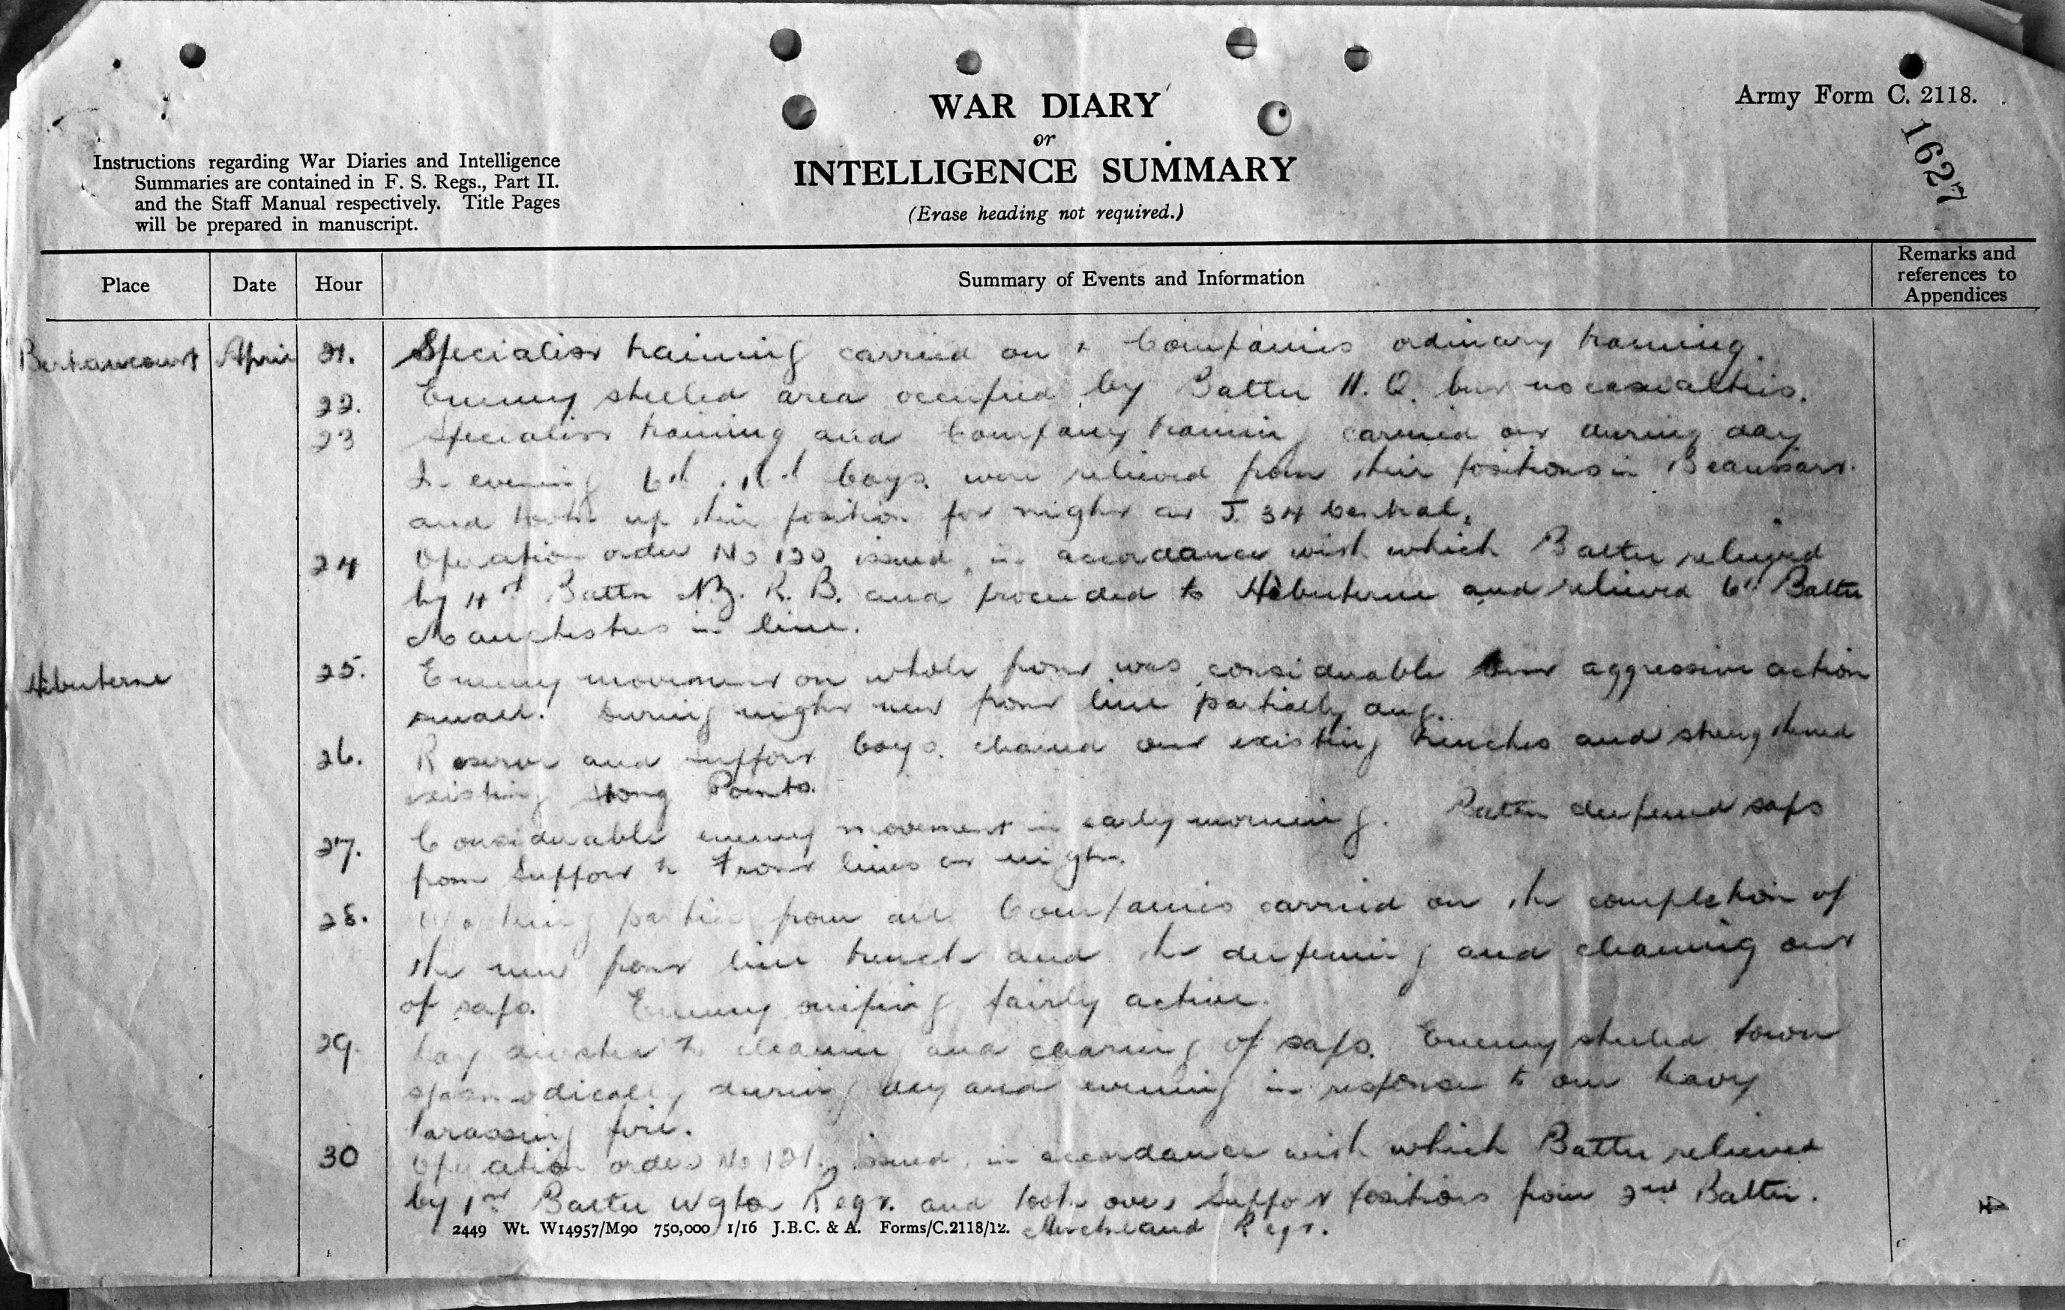 Army Form C. 2118.
WAR DIARY
or
INTELLIGENCE SUMMARY
(Erase heading not required.)
Instructions regarding War Diaries and Intelligence
Summaries are contained in F. S. Regs., Part II.
and the Staff Manual respectively. Title Pages
will be prepared in manuscript.
1627
Place Date Hour Summary of Events and Information Remarks and references to Appendices
Bertrancourt April 21. Specialist training carried on & Companies ordinary training.
22. Enemy shelled area occupied by Battn H.Q. but no casualties.
23 Specialist training and Company training carried out during day
In evening 6th Coys. were relieved from their positions in Beaussart
and took up their position for night at J. 34 Central.
24 Operation order No 120 issued, in accordance with which Battn relieved
by 4th Battn N.Z. R. B. and proceeded to Hébuterne and relieved 6th Battn
Manchesters in line.
Hébuterne 25. Enemy movement on whole front was considerable but aggressive action
small. During night new front line partially dug.
26. Reserve and Support Coys. cleaned out existing trenches and strengthened
existing Strong Points.
27. Considerable enemy movement in early morning. Battn deepened saps
from Support to Front lines at night.
28. Working parties from all Companies carried on the completion of
the new front line trench and the deepening and cleaning out
of saps. Enemy sniping fairly active.
29. Day devoted to cleaning and clearing of saps. Enemy shelled town
spasmodically during day and evening in response to our heavy
harassing fire.
30 Operation order No 121. issued, in accordance with which Battn relieved
by 1st Battn Wgton Regt. and took over Support positions from 2nd Battn.
Auckland Regt.
2449 Wt. W14957/M90 750,000 1/16 J.B.C. & A. Forms/C.2118/12.